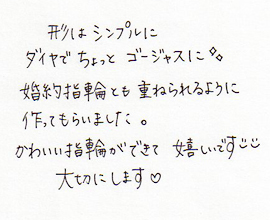 形はシンプルに
ダイヤで ちょっと ゴージャスに
婚約指輪とも 重ねられるように
作ってもらいました。
かわいい指輪ができて 嬉しいです
大切にします♡